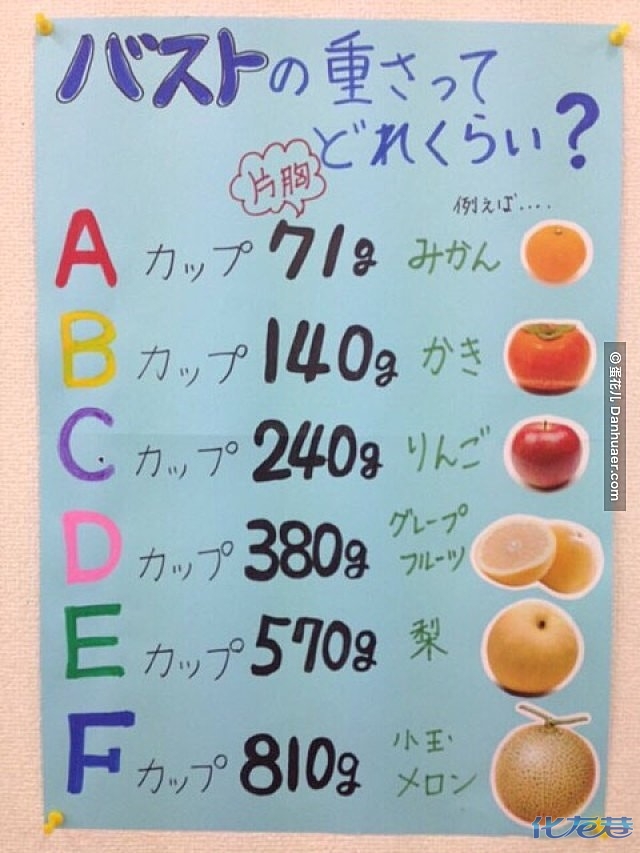 バストの重さって
どれくらい？
片胸
例えば....
A カップ 71g みかん
B カップ 140g かき
C カップ 240g りんご
D カップ 380g グレープ
フルーツ
E カップ 570g 梨
F カップ 810g 小玉
メロン
© 蛋花儿 Danhuaer.com
化龙巷